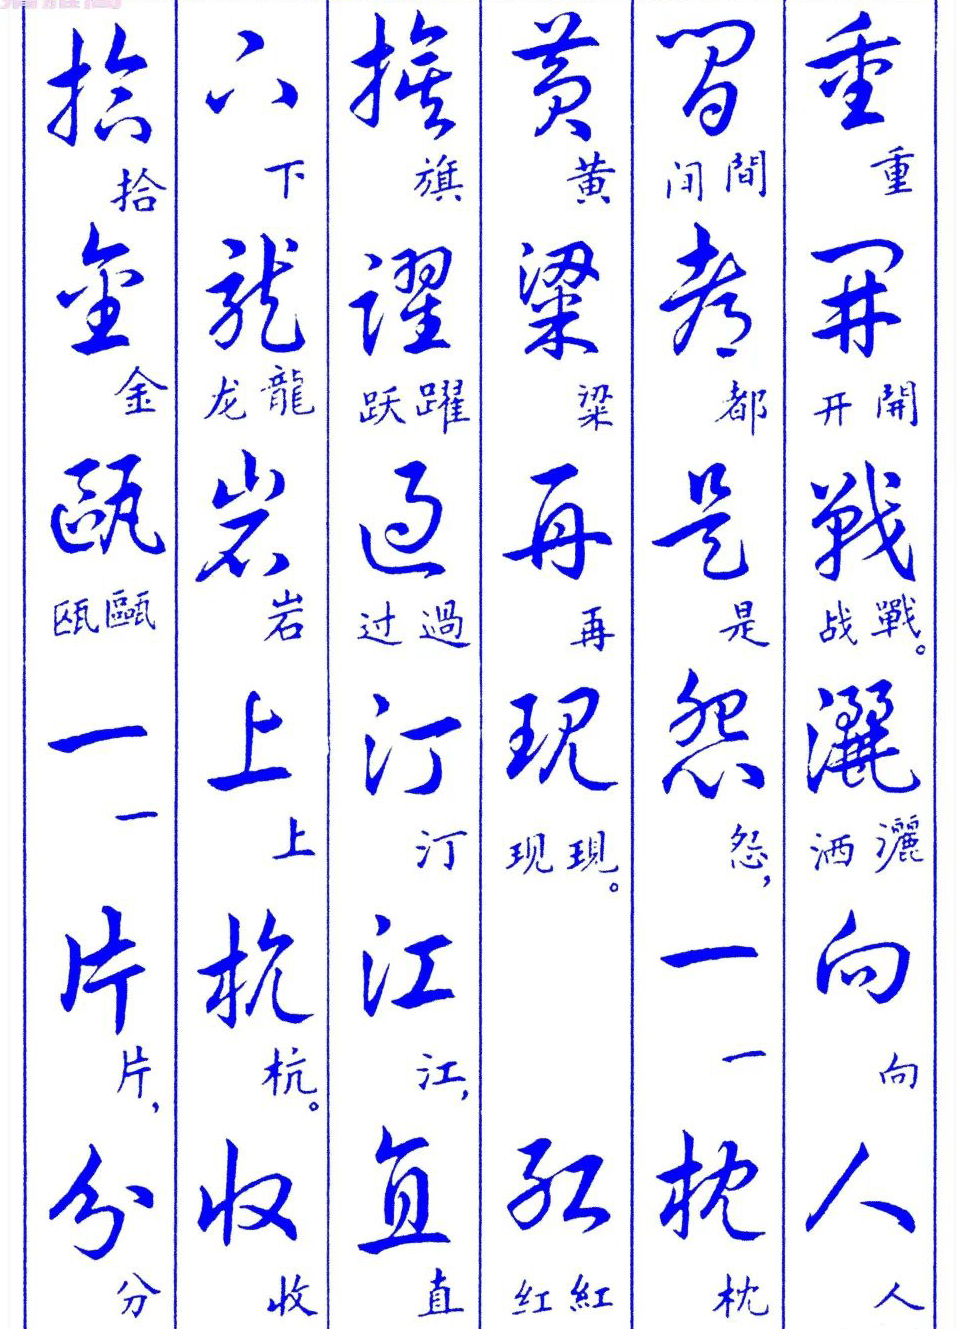 重 重 開 開 开 戰 戰 战。 灑 灑 洒 向 向 人 人
間 間 间 都 都 是 是 怨 怨， 一 一 枕 枕
黄 黄 粱 粱 再 再 現 現 现。 紅 紅 红
旗 旗 躍 躍 跃 過 過 过 汀 汀 江 江， 直 直
下 下 龍 龍 龙 岩 岩 上 上 杭 杭。 收 收
拾 拾 金 金 甌 甌 瓯 一 一 片 片， 分 分